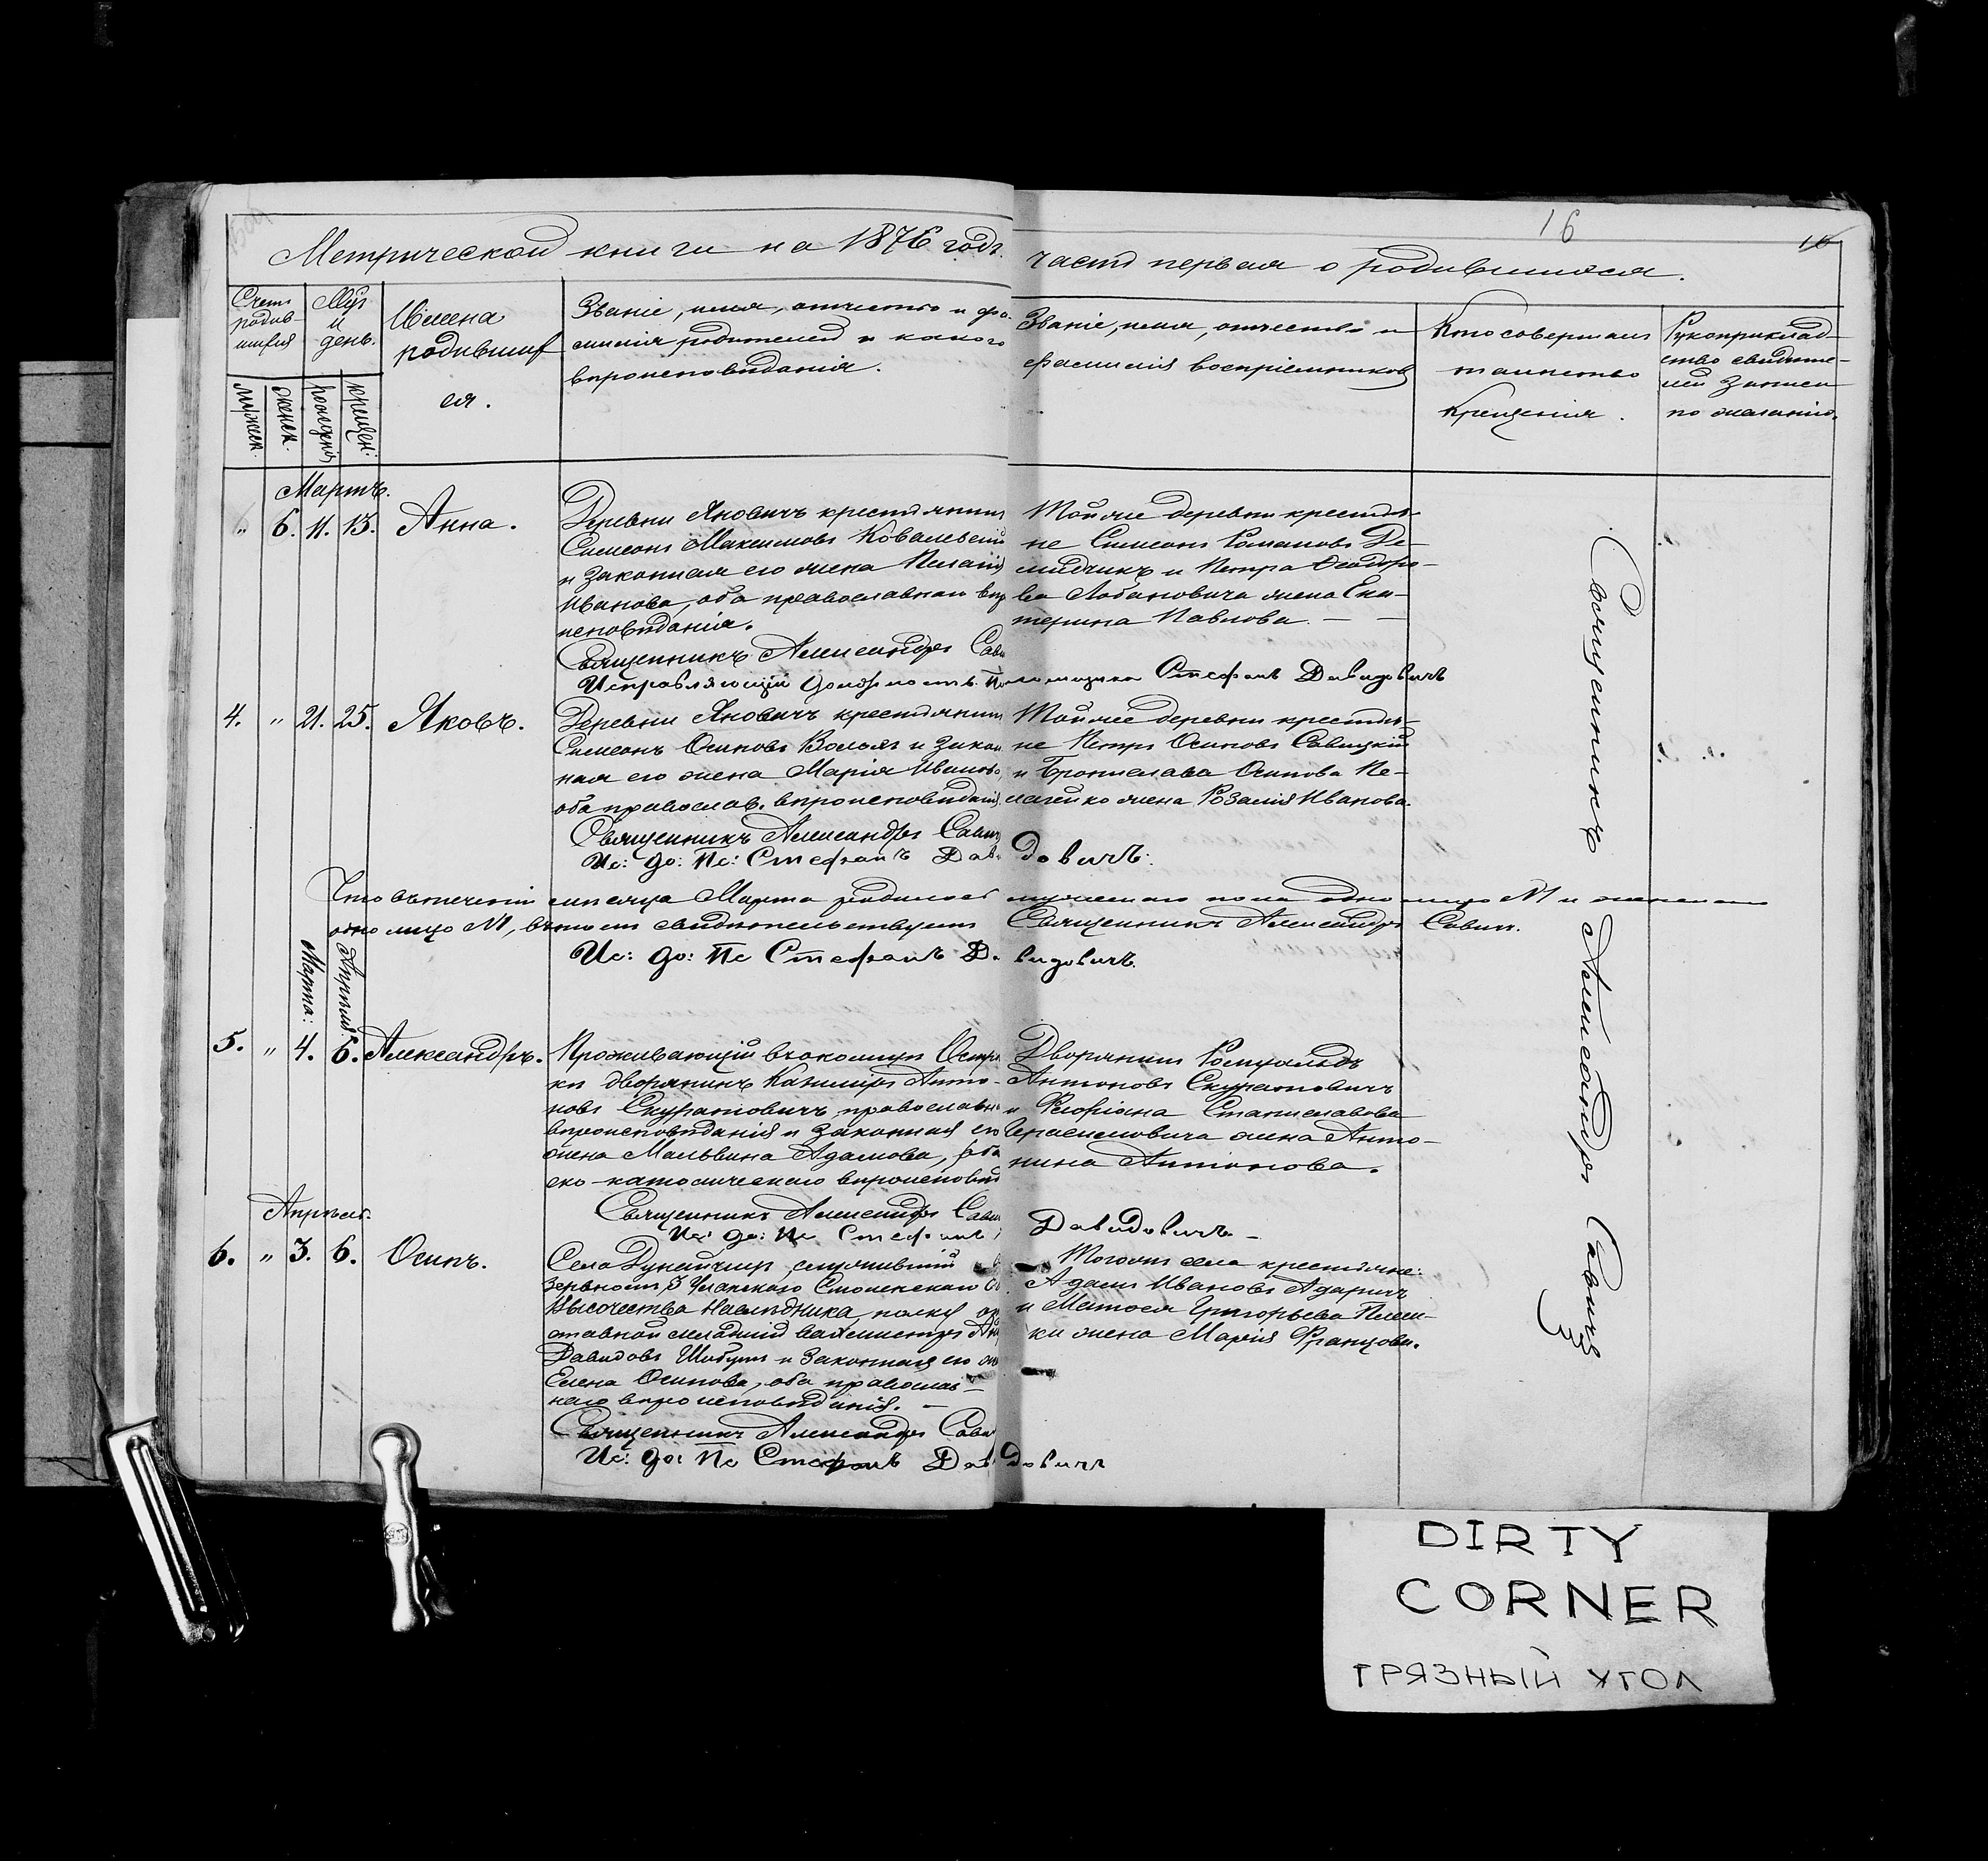 16
16
Метрической книги на 1876 годъ
часть первая о родившихся.
Счетъ родив-
шихся
Мѣс.
и
день.
Имена
родившиф
ся.
Званіе, имя, отчество и фа-
милія родителей и какого
вѣроисповѣданія.
Званіе, имя, отчество и
фамилія воспріемниковъ
Кто совершалъ
таинство
Крещенія.
Рукоприклад-
ство свидѣте-
лей записи
по желанію.
мужеск.
женск.
рожденія
крещен:
Мартъ.
" 6. 11. 13. Анна.
Деревни Яновичъ крестьянинъ
Симеонъ Максимовъ Ковалевскій
и законная его жена Пелагія
Иванова, оба православнаго вѣр
исповѣданія.
Священникъ Александръ Сави
Исправляющій должность Псаломщика Стефанъ Давидовичъ
Той же деревни крестья-
не Симеонъ Романовъ Де-
мидчикъ и Петра Ѳеодоро-
ва Лобановича жена Ека-
терина Павлова. — —
4. " 21. 25. Яковъ.
Деревни Яновичъ крестьянинъ
Симеонъ Осиповъ и закон
ная его жена Марія Иванова,
оба православ. вѣроисповѣданія
Священникъ Александръ Савич
Ис: до: Пс: Стефанъ Давидовичъ:
Той же деревни крестья-
не Петръ Осиповъ Савицкій
и Бронислава Осипова Пе-
лагейко жена Розалія Иванова.
Что въ теченіи мѣсяца Марта родилось мужескаго пола одно лицо №1 и женскаго
одно лицо №1, въ томъ свидѣтельствуетъ Священникъ Александръ Савич.
Ис: до: Пс Стефанъ Давидовичъ.
Марта:
Апрѣля:
5. " 4. 6. Александръ.
Проживающій въ околицѣ Остро
ки дворянинъ Казиміръ Анто-
новъ Скуратовичъ православн
вѣроисповѣданія и законная его
жена Мальвина Адамова,
ско-католическаго вѣроисповѣд
Священникъ Александръ Сави
Ис: до: Пс Стефанъ Давидовичъ —
Дворянинъ Ромуальдъ
Антоновъ Скуратовичъ
и Флоріана Станиславова
Герасимовича жена Анто-
нина Антонова.
Апрѣль.
6. " 3. 6. Осипъ.
Села Дунайчицъ служившій въ
3 Уланскаго Смоленскаго
Высочества Наслѣдника, полку
отавной младшій вахмистръ
Давидовъ Шабунъ и законная его
Елена Осипова, оба православ-
наго вѣроисповѣданія. —
Священникъ Александръ Сави
Ис: до: Пс Стефанъ Давидовичъ
Тогожъ села крестьяне:
Адамъ Ивановъ Адаричъ
и Матѳея Григорьева
ки жена Марія Францова.
Священникъ Александръ Савичъ
DIRTY
CORNER
ГРЯЗНЫЙ УГОЛ